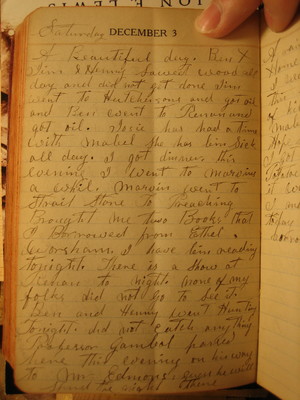 N F. LEWIS
Saturday DECEMBER 3
A beautiful day. Ben &
Jim & Henry Sawed wood all
day and did not get done Jim
went to Hutchersons and got oil
and Ben went to Renan and
got oil. Josie has had a time
with Mabel she has bin Sick
all day. I got dinner, this
evening I went to Marvins
a whil. Marvin went to
Strait Stone to Preaching
Brought me two Books that
I Borrowed from Ethel
Worsham. I have bin reading
tonight. There is a Show at
Renan to night. none of my
folks did not go to See it.
Ben and Henry went Hunting
tonight. did not Catch anything
Gambol passed
here this evening on his way
to Jim Edmons. guess he will
Spend the night there